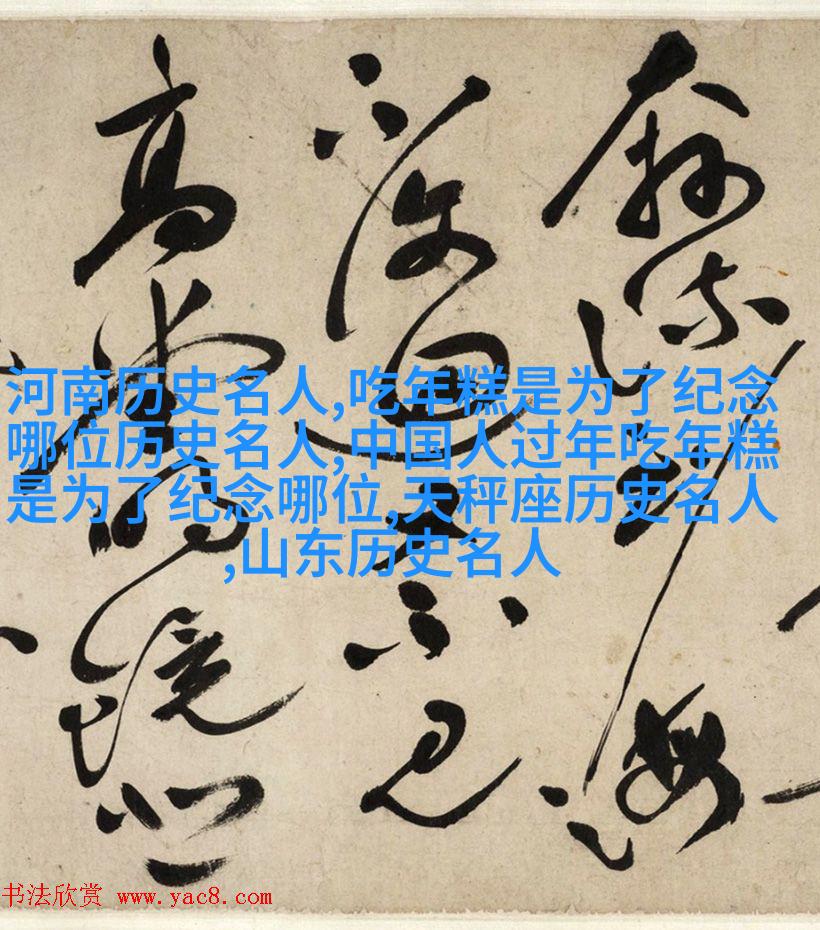 流到海
不復迴
不見
高堂明鏡悲
河南历史名人,吃年糕是为了纪念
哪位历史名人,中国人过年吃年糕
是为了纪念哪位,天秤座历史名人
,山东历史名人
书法欣赏 www.yac8.com